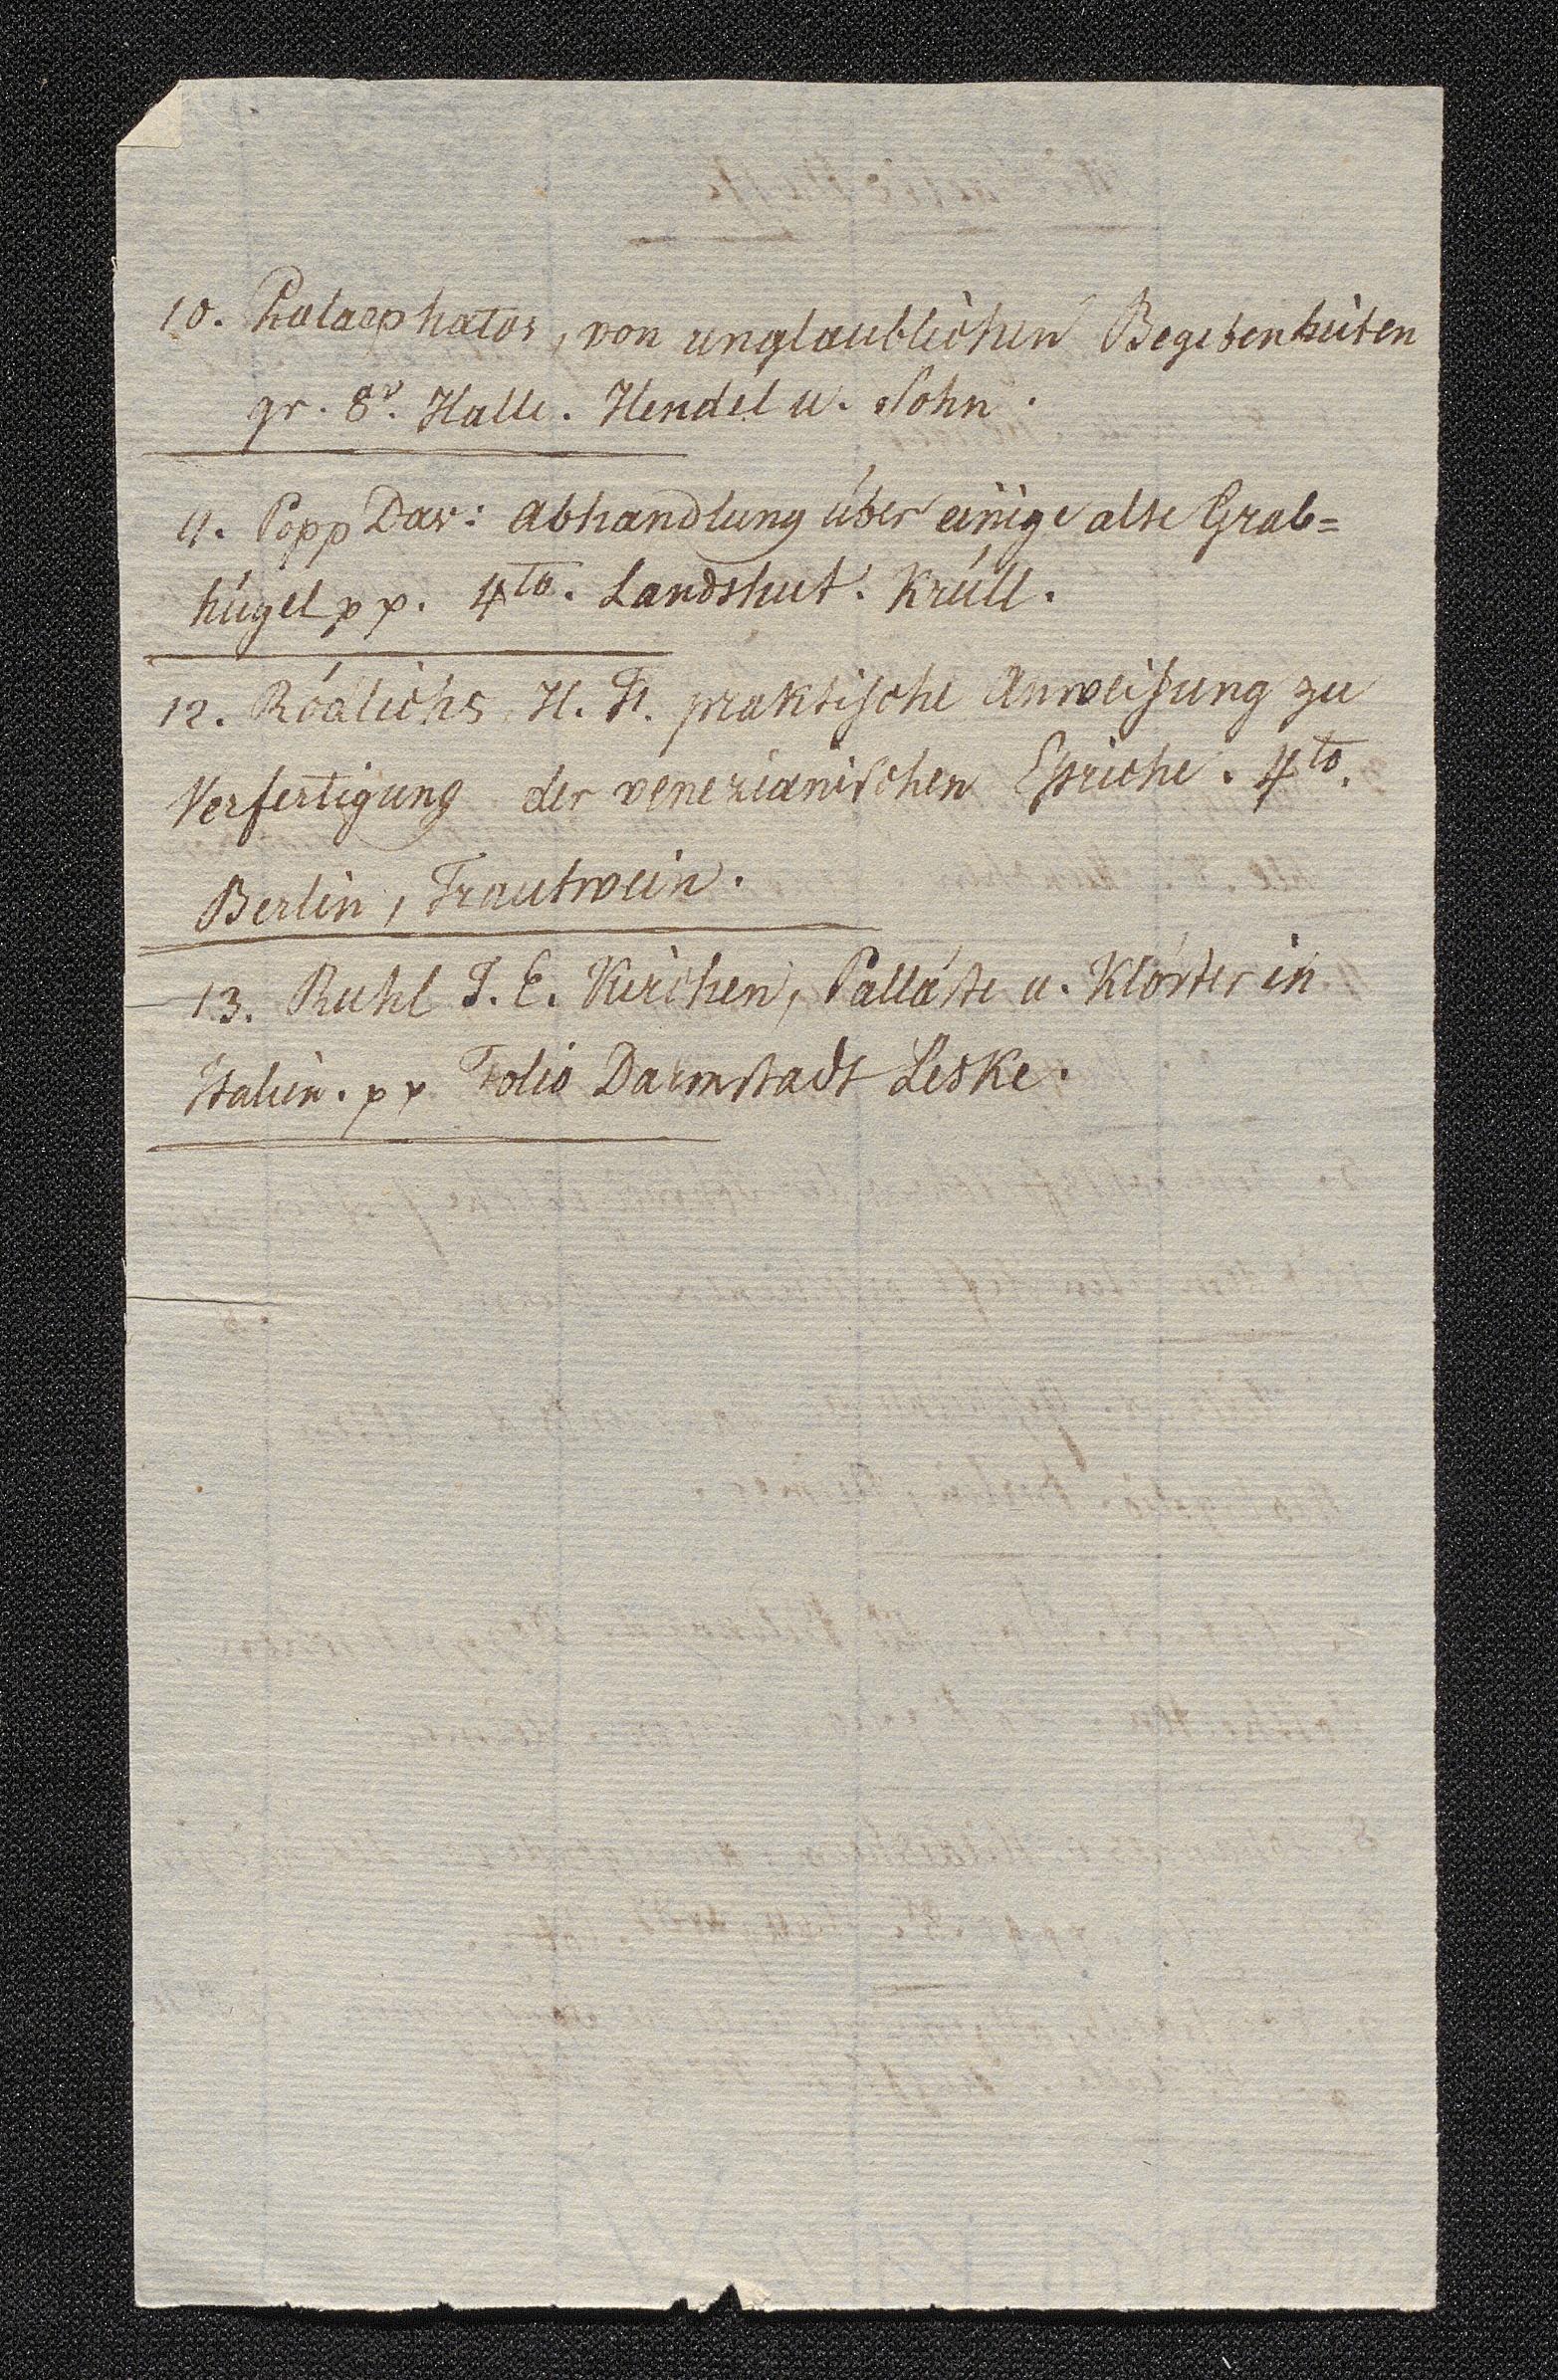 10. Palaephatos, von unglaublichen Begebenheiten
gr. 8º. Halle. Hendel u. Sohn.
11. Popp Dav: Abhandlung über einige alte Grab=
hügel pp. 4to. Landshut. Krüll.
12. Rödlichs H. F. praktische Anweisung zu
Verfertigung der venezianischen Estriche. 4to.
Berlin, Trautwein.
13. Ruhl J. E. Kirchen, Palläste u. Klöster in
Italien. pp Folio Darmstadt Leske.